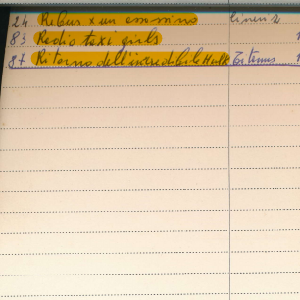 24 Rebus x un assassino linea 2
83 Radio taxi girls
87 Ritorno dell'incredibile Hulk Titanus